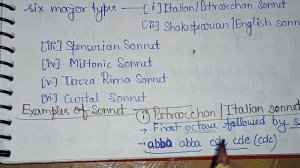 six major types — [i] Italian/Petrarchan Sonnet
[ii] Shakespearian/English sonn
[iii] Spenserian Sonnet
[iv] Miltonic Sonnet
[v] Terza Rima Sonnet
[vi] Curtal Sonnet
Examples of Sonnet (i) Petrarchan/Italian sonnet
→ First octave followed by s
→ abba abba cde cde (cdc)